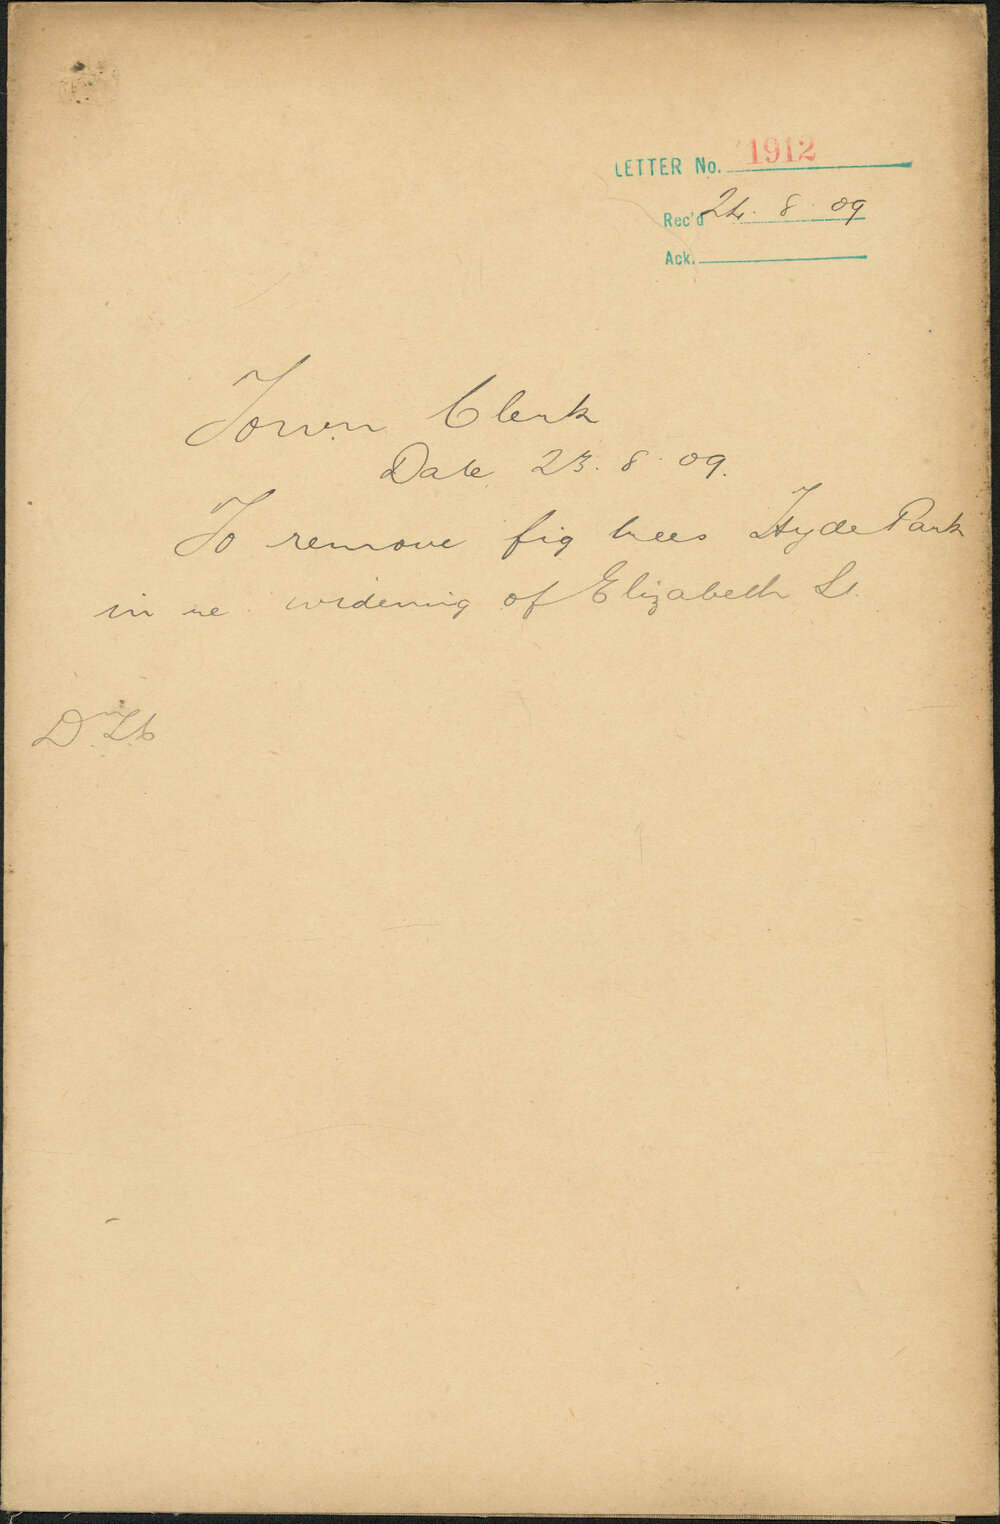 LETTER No. 1912
Rec'd 24. 8. 09
Ack.
Town Clerk
Date 23. 8. 09.
To remove fig trees Hyde Park
in re widening of Elizabeth St.